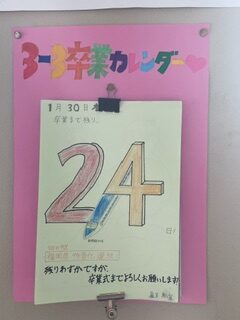 3-3卒業カレンダー♥
1月30日木
卒業まで残り、
24
日!
残りわずかですが、
卒業式までよろしくお願いします!